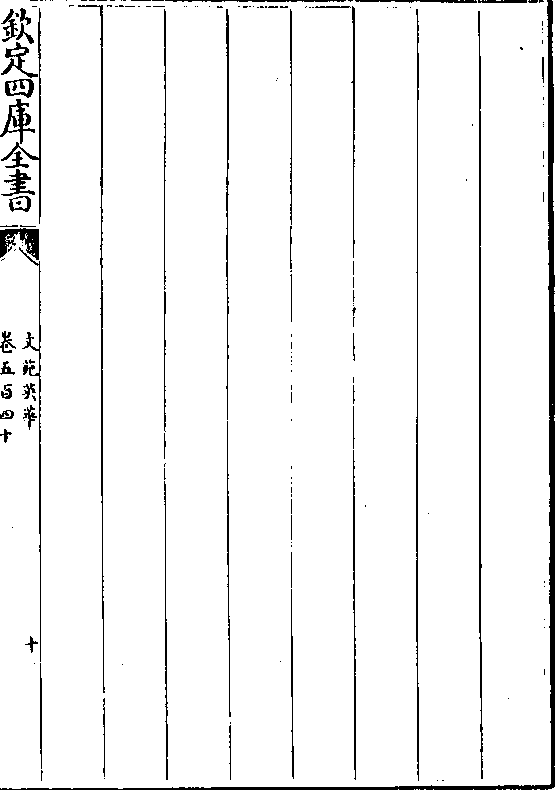 欽定四庫全書
文苑英華
卷五百四十
十